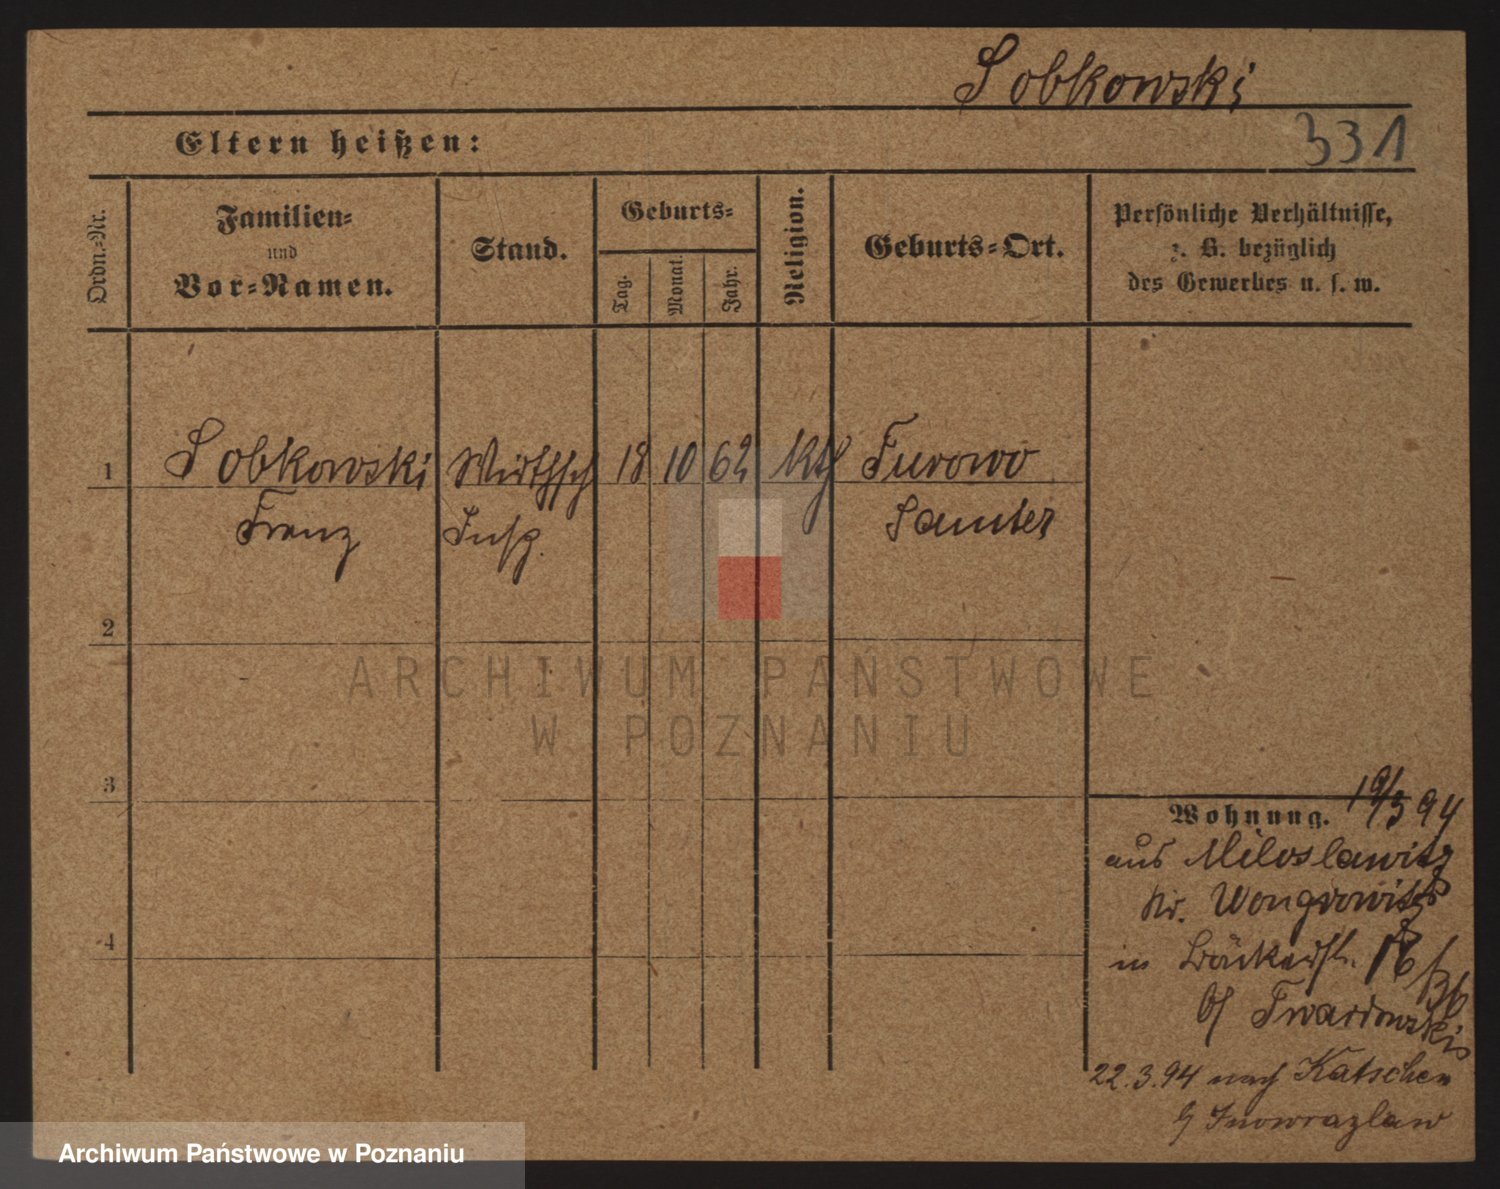 Sobkowski
331
Eltern heißen:
Ordn.-Nr.
Familien-
und
Vor-Namen.
Stand.
Geburts-
Tag.
Monat.
Jahr.
Religion.
Geburts-Ort.
Persönliche Verhältnisse,
z. B. bezüglich
des Gewerbes u. s. w.
1 Sobkowski Wirthsch 18 10 62 kth Turowo
Franz Insp. Samter
2
3
4
ARCHIWUM PAŃSTWOWE
W POZNANIU
Wohnung. 19/3 94
aus Miloslawitz
Kr. Wongrowitz
in Bäckerstr. 16
b/ Twardowski
22.3.94 nach Katschen
Inowrazlaw
Archiwum Państwowe w Poznaniu